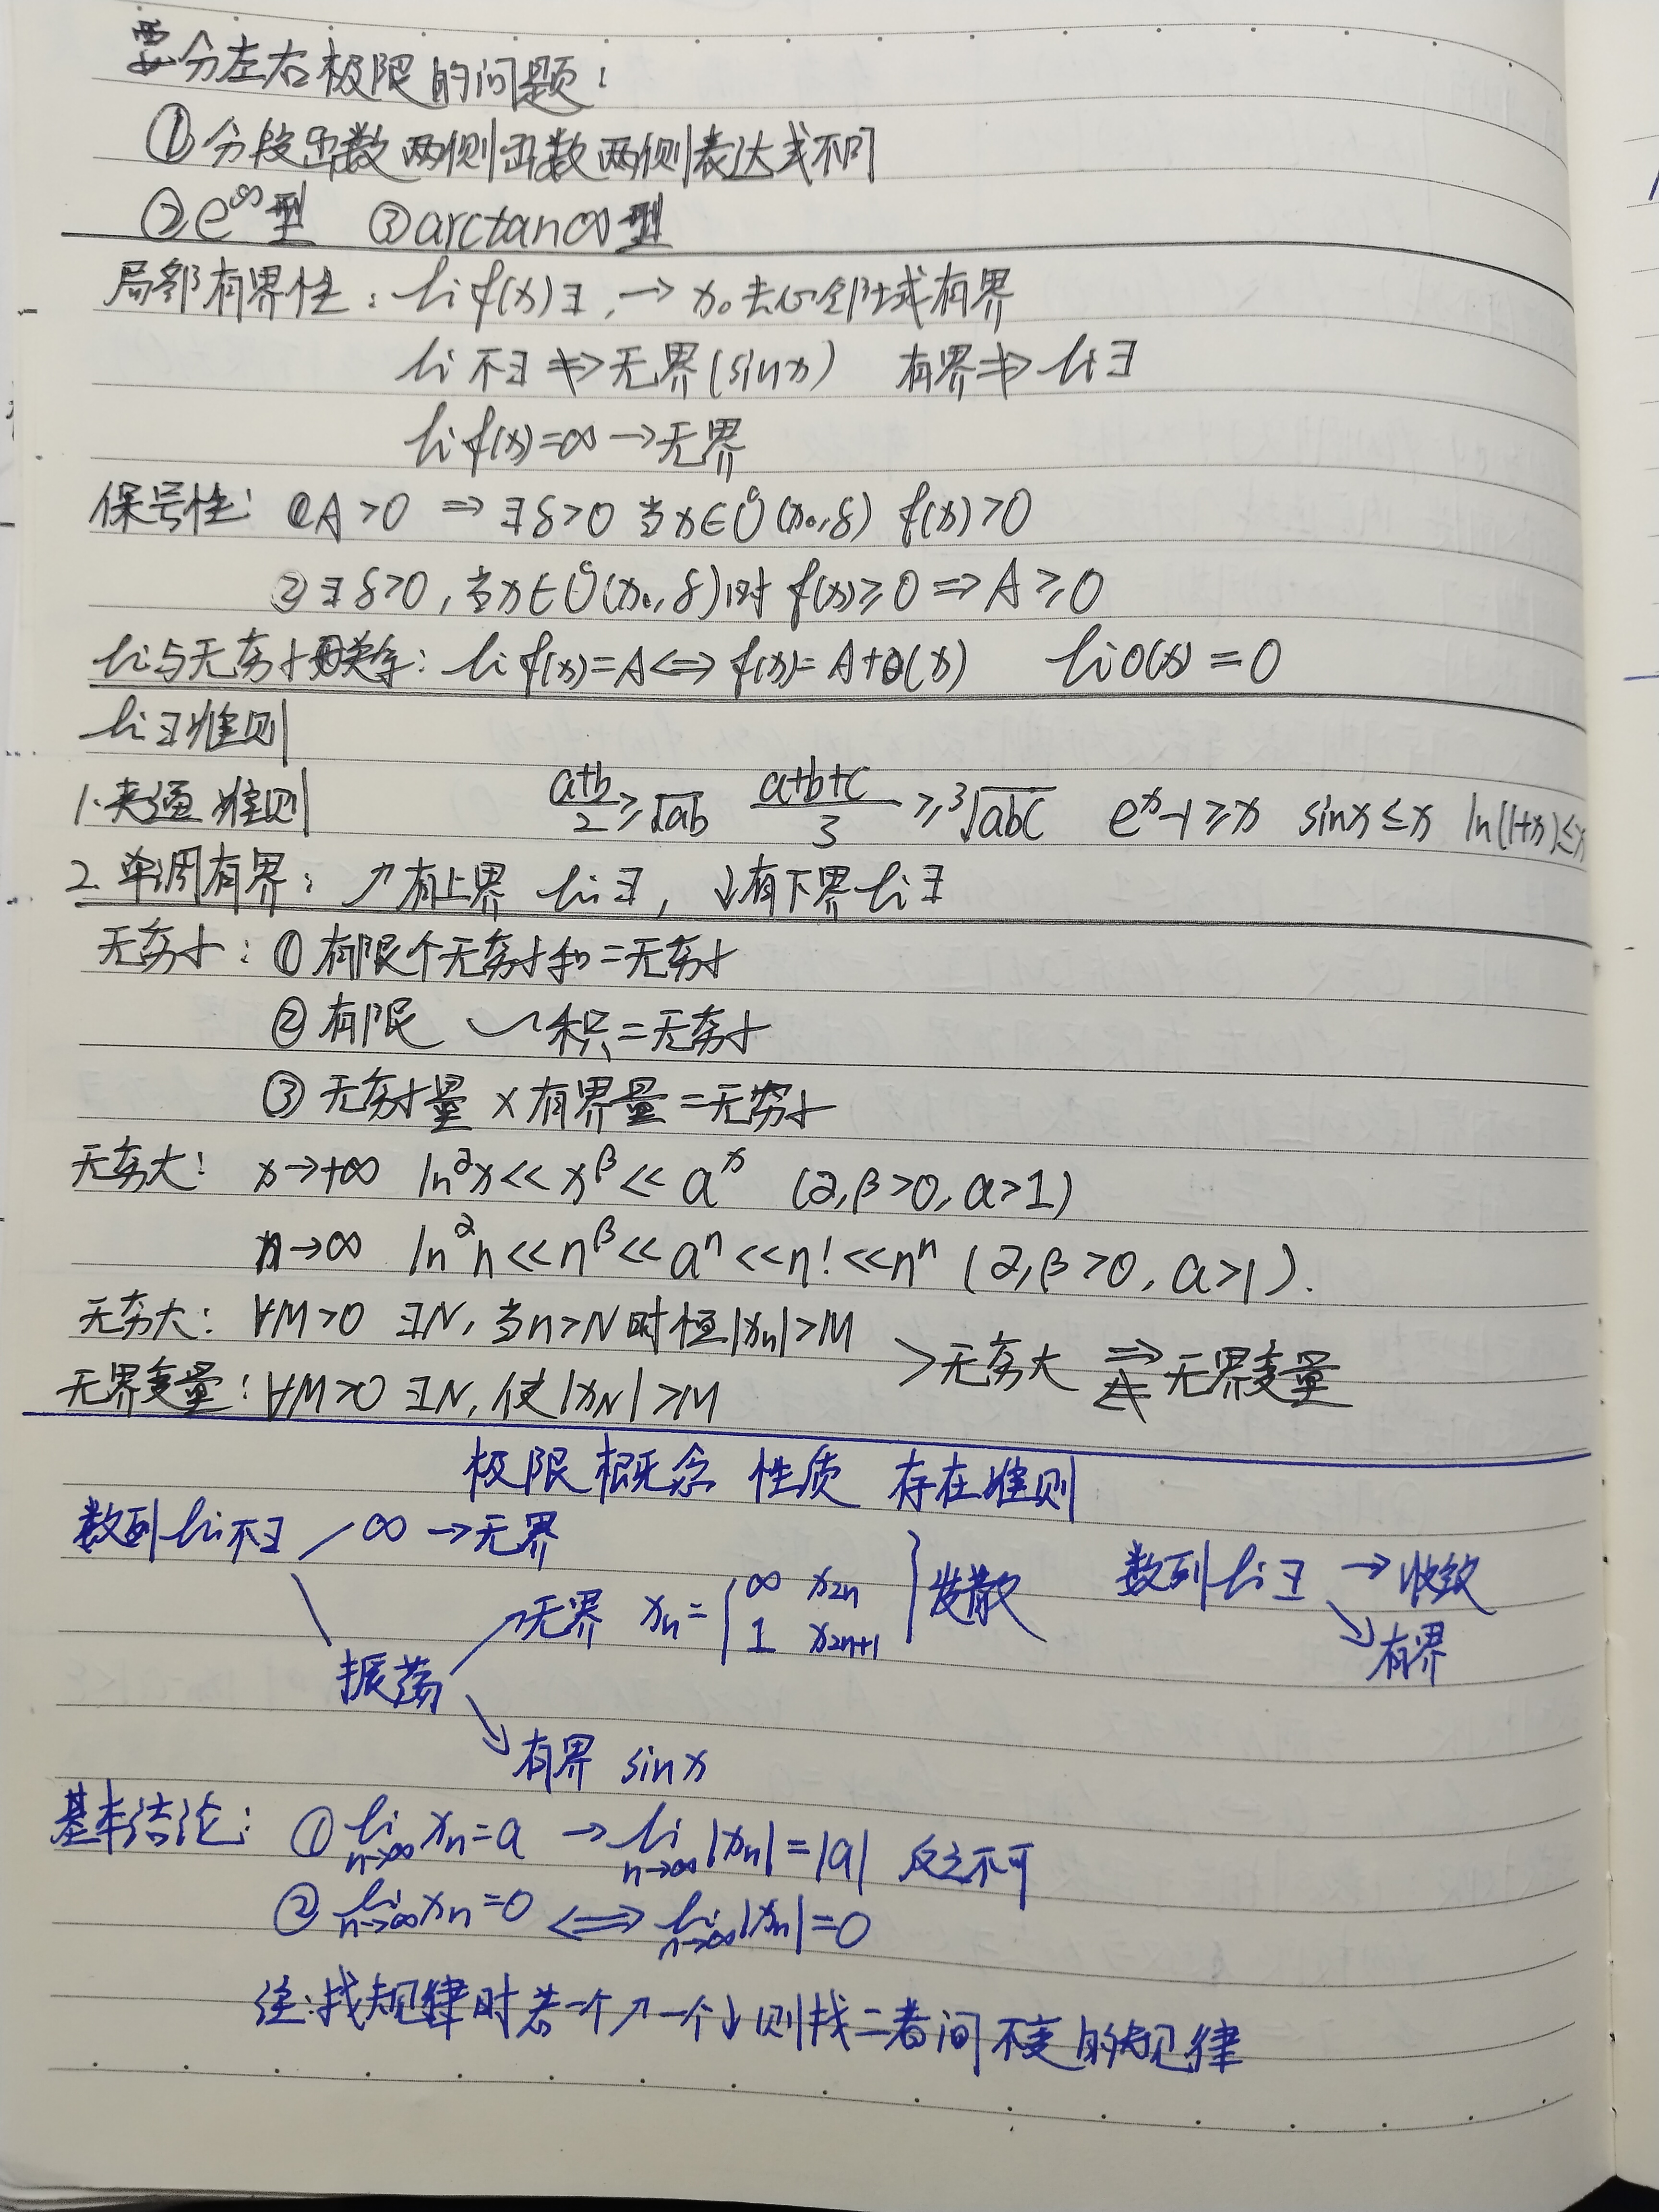 要分左右极限的问题:
①分段函数两侧函数两侧表达式不同
②e^∞型 ③arctan∞型
局部有界性: li f(x)∃, → x₀去心邻域有界
li 不∃ ⇏ 无界(sinx) 有界⇏ li∃
li f(x)=∞ →无界
保号性: ①A>0 ⇒ ∃δ>0 当x∈Ů(x₀,δ) f(x)>0
②∃δ>0,当x∈Ů(x₀,δ)时 f(x)≥0 ⇒ A≥0
li与无穷小关系: li f(x)=A ⟺ f(x)=A+o(x) li o(x)=0
li∃准则
1.夹逼准则 (a+b)/2≥√ab (a+b+c)/3 ≥ ³√abc e^x-1≥x sinx≤x ln(1+x)≤x
2.单调有界: ↗有上界 li∃, ↓有下界li∃
无穷小: ①有限个无穷小和=无穷小
②有限 〃 积=无穷小
③无穷小量×有界量=无穷小
无穷大: x→+∞ ln^α x<<x^β<<a^x (α,β>0,a>1)
n→∞ ln^α n<<n^β<<a^n<<n!<<n^n (α,β>0,a>1).
无穷大: ∀M>0 ∃N,当n>N时恒|xₙ|>M
无界变量: ∀M>0 ∃N,使|x_N|>M
>无穷大 ⇒ ⇍ 无界变量
极限概念 性质 存在准则
数列li不∃ ∞→无界
无界 xₙ={∞ x₂ₙ 1 x₂ₙ₊₁ }发散
数列li∃ →收敛
有界
振荡
有界 sinx
基本结论: ①li n→∞ xₙ=a → li n→∞ |xₙ|=|a| 反之不可
②li n→∞ xₙ=0 ⟺ li n→∞ |xₙ|=0
注:找规律时若一个↗一个↓则找二者间不变的规律